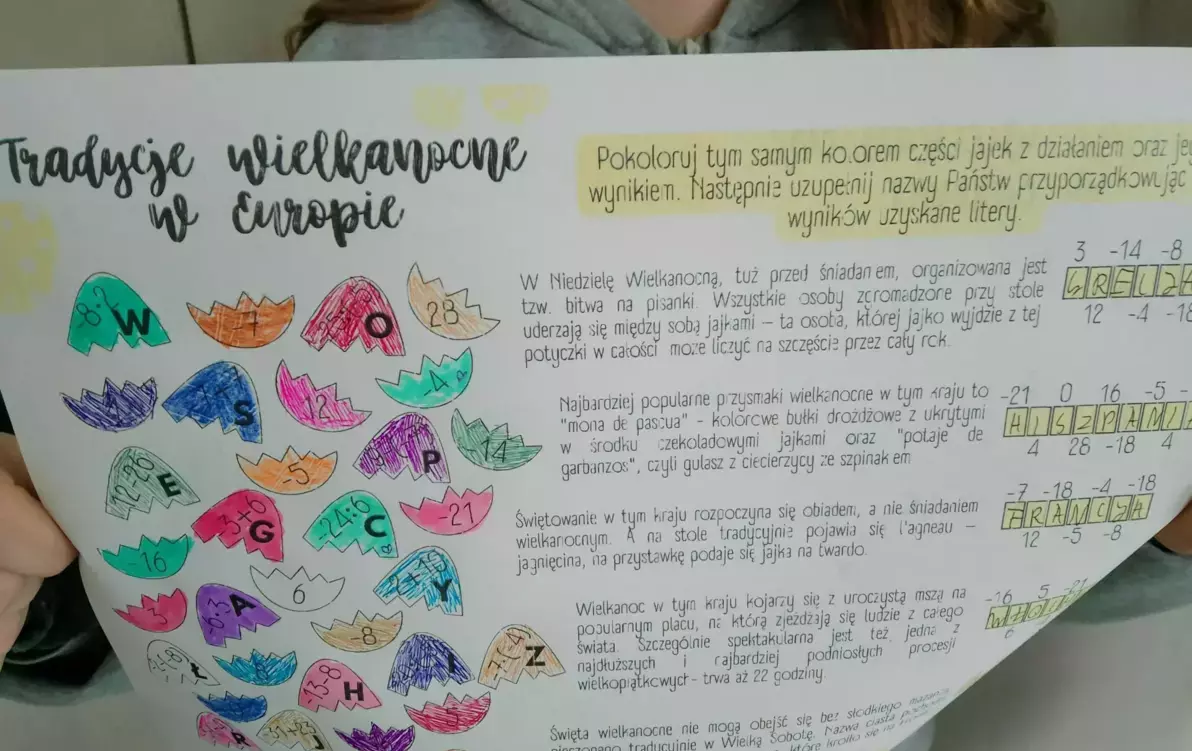 Tradycje wielkanocne
w Europie
Pokoloruj tym samym kolorem części jajek z działaniem oraz
wynikiem. Następnie uzupełnij nazwy Państw przyporządkowując
wyników uzyskane litery.
W Niedzielę Wielkanocną, tuż przed śniadaniem, organizowana jest
tzw. bitwa na pisanki. Wszystkie osoby zgromadzone przy stole
uderzają się między sobą jajkami – ta osoba, której jajko wyjdzie z tej
potyczki w całości może liczyć na szczęście przez cały rok.
3 -14 -8
GRECJA
12 -4 -18
Najbardziej popularne przysmaki wielkanocne w tym kraju to
"mona de pascua" - kolorowe bułki drożdżowe z ukrytymi
w środku czekoladowymi jajkami oraz "potaje de
garbanzos", czyli gulasz z ciecierzycy ze szpinakiem
-21 0 16 -5
HISZPANIA
4 28 -18 4
Świętowanie w tym kraju rozpoczyna się obiadem, a nie śniadaniem
wielkanocnym. A na stole tradycyjnie pojawia się l'agneau –
jagnięcina, na przystawkę podaje się jajka na twardo.
-7 -18 -4 -18
FRANCJA
12 -5 -8
Wielkanoc w tym kraju kojarzy się z uroczystą mszą na
popularnym placu, na którą zjeżdżają się ludzie z całego
świata. Szczególnie spektakularna jest też jedna z
najdłuższych i najbardziej podniosłych procesji
wielkopiątkowych - trwa aż 22 godziny.
-16 5 -21
6
Święta wielkanocne nie mogą obejść się bez słodkiego mazańca
pieczonego tradycyjnie w Wielką Sobotę. Nazwa ciasta
-8·2 W
-7
O
28
S
12
-4
P
14
12-26 E
-5
-3+6 G
-24:6 C
-21
-16
6
Y
3
A
-8
Z
I
13-8 H
5
R
J